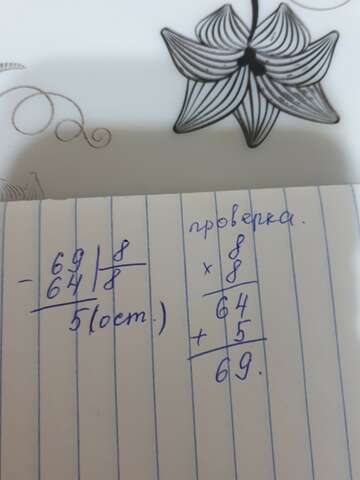 69 8
- 64 8
5 (ост.)
проверка.
8
× 8
64
+ 5
69.